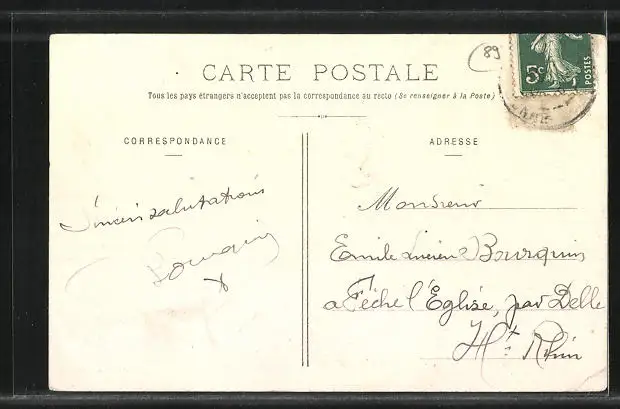 89
5c
POSTES
CARTE POSTALE
Tous les pays étrangers n'acceptent pas la correspondance au recto (Se renseigner à la Poste)
CORRESPONDANCE
Sincères salutations
Bourquin
ADRESSE
Monsieur
Emile Lucien Bourquin
a Fêche l'Eglise, par Delle
Ht Rhin